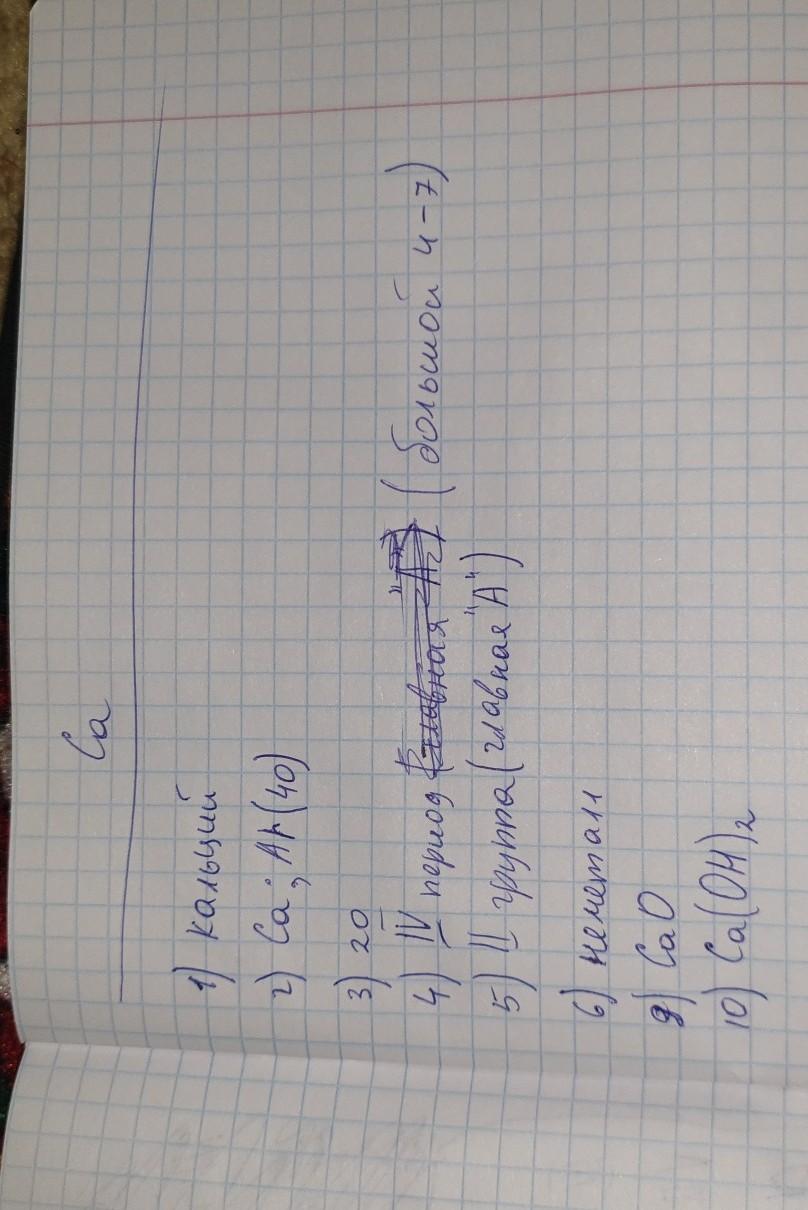 Ca
1) кальций
2) Ca; Ar(40)
3) 20
4) IV период (главная "А") (большой 4-7)
5) II группа (главная "А")
6) неметалл
9) CaO
10) Ca(OH)2